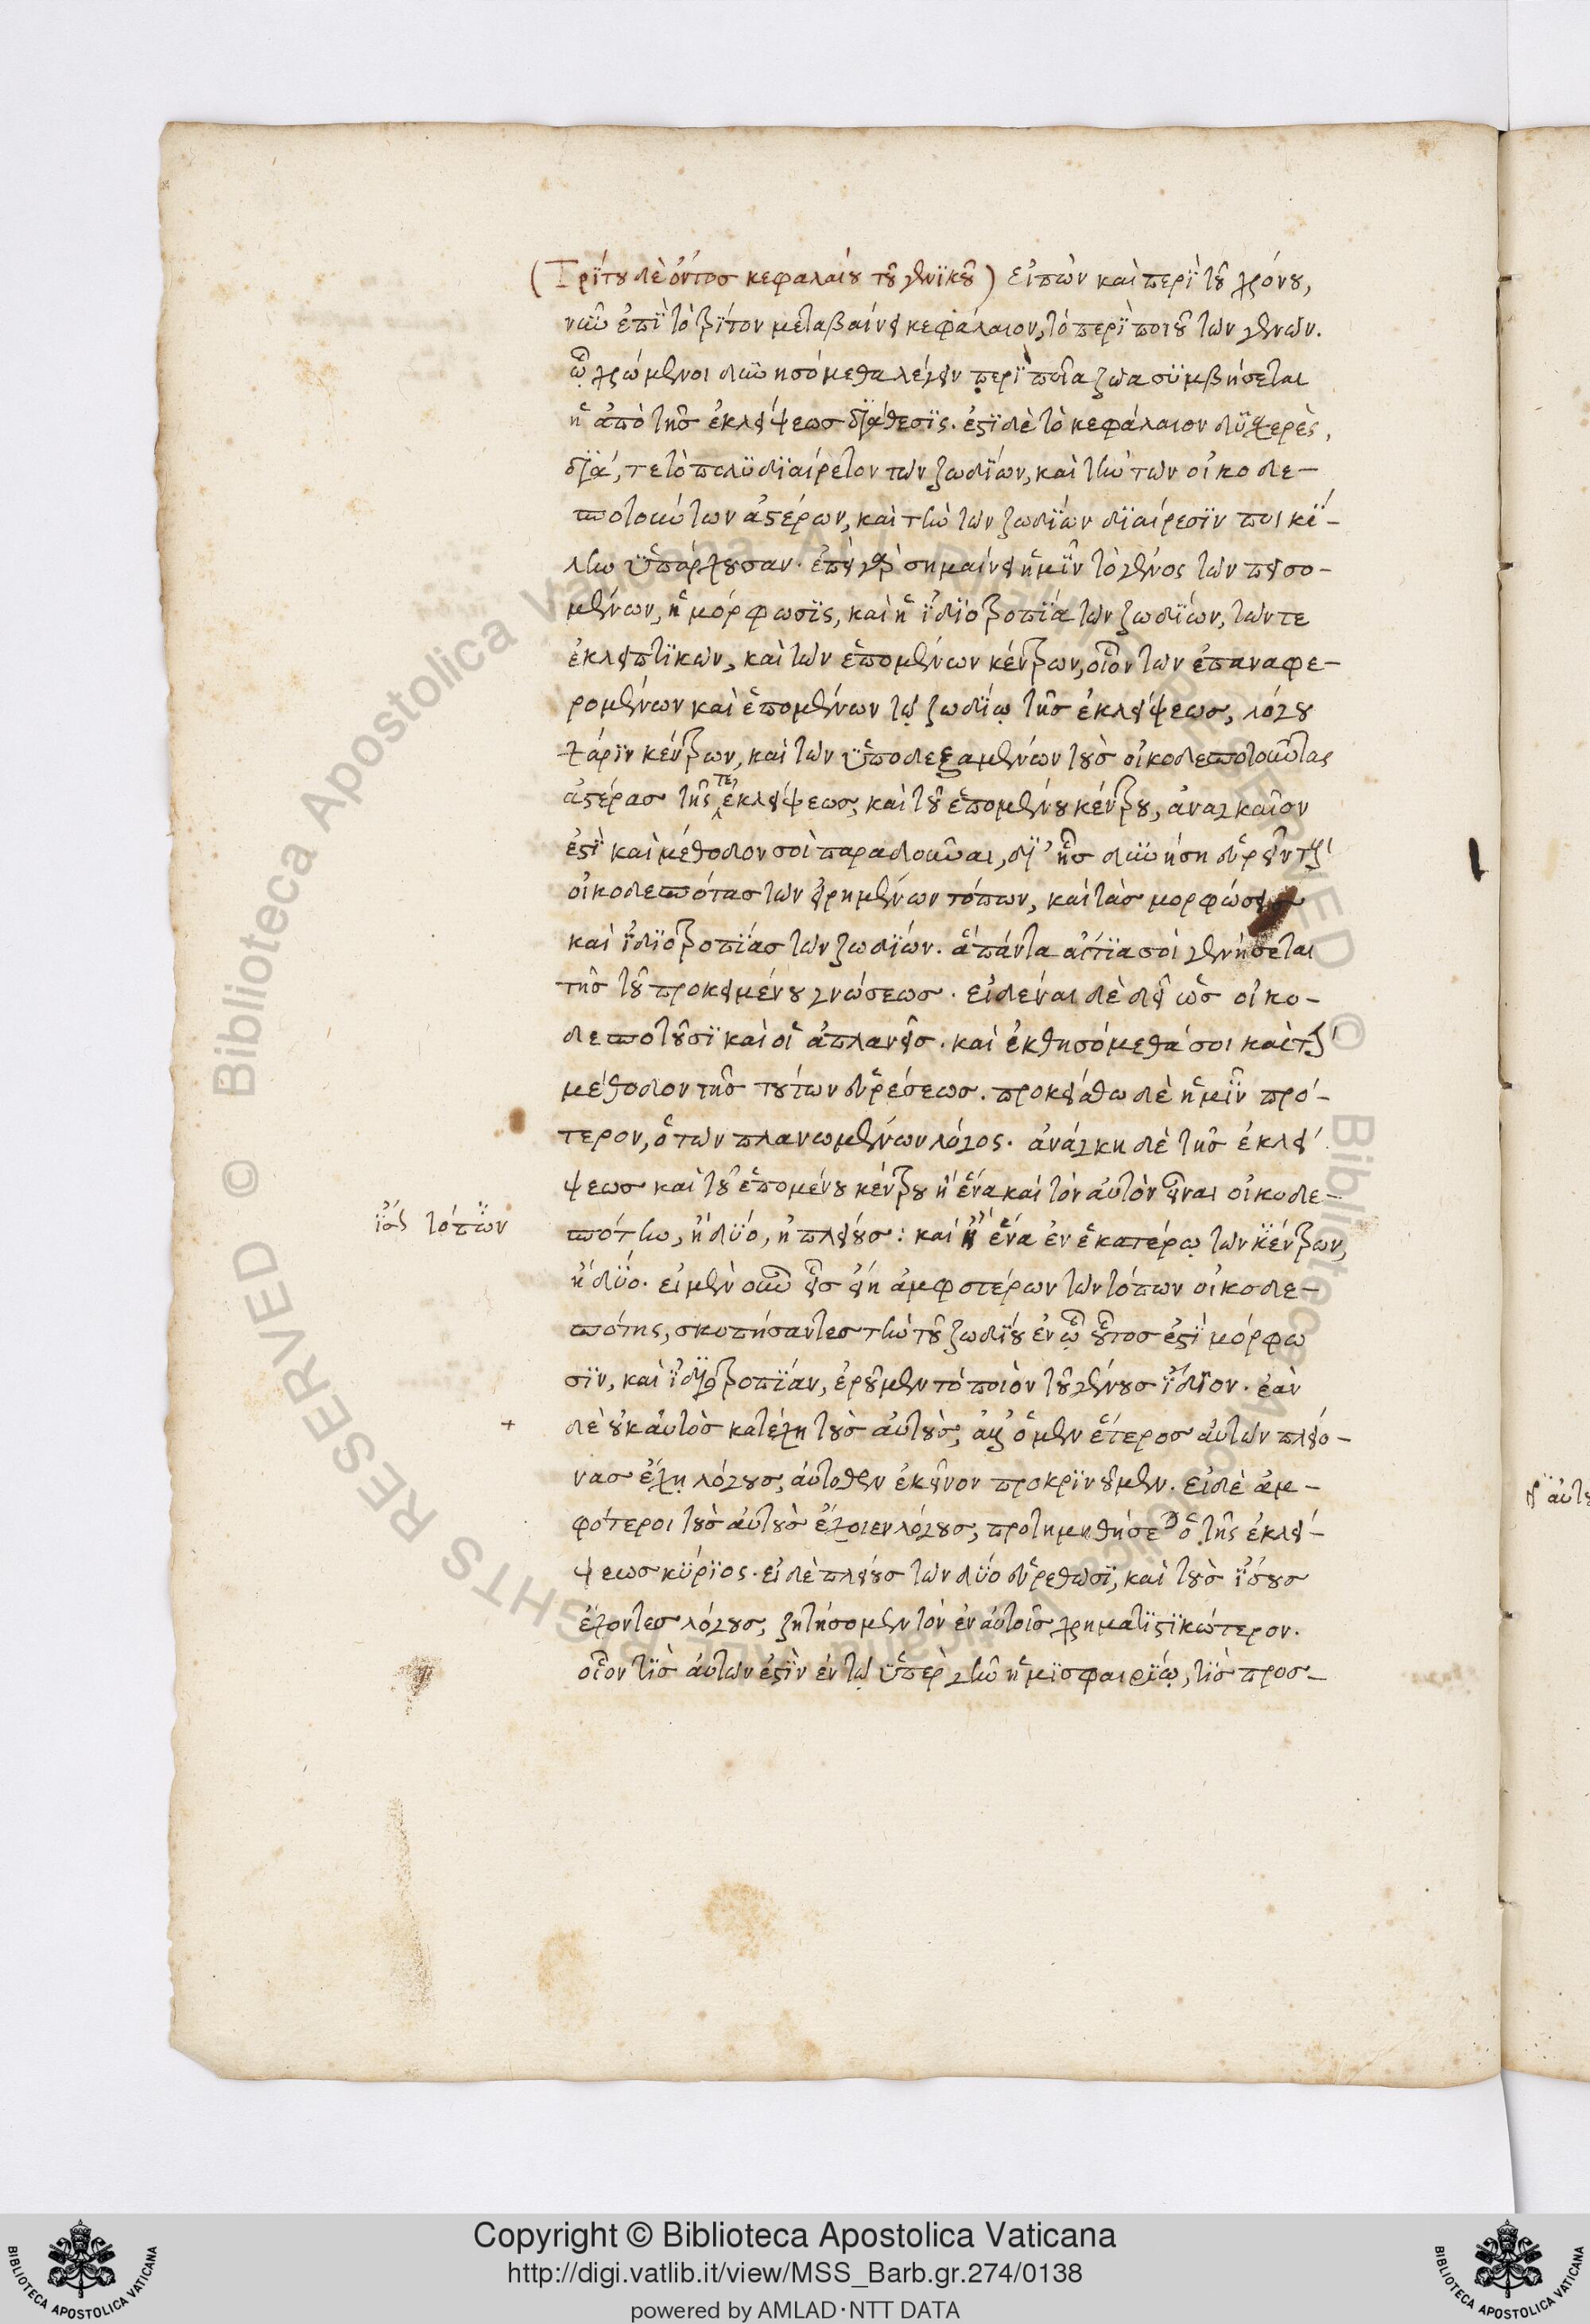 (Τρίτου δὲ ὄντος κεφαλαίου τοῦ γενικοῦ) εἰπὼν καὶ περὶ τοῦ χρόνου,
νῦν ἐπὶ τὸ τρίτον μεταβαίνει κεφάλαιον, τὸ περὶ ποιοῦ τῶν γενῶν.
ᾧ χρώμενοι δυνησόμεθα λέγειν περὶ ποῖα ζῶα συμβήσεται
ἡ ἀπὸ τῆς ἐκλείψεως διάθεσις. ἐστὶ δὲ τὸ κεφάλαιον δυσχερὲς,
διά, τε τὸ πολυδιαίρετον τῶν ζωδίων, καὶ τὴν τῶν οἰκοδε-
σποτούντων ἀστέρων, καὶ τὴν τῶν ζωδίων διαίρεσιν ποικί-
λην ὑπάρχουσαν. ἐπεὶ γὰρ σημαίνει ἡμῖν τὸ γένος τῶν πεισο-
μένων, ἡ μόρφωσις, καὶ ἡ ἰδιοτροπία τῶν ζωδίων, τῶν τε
ἐκλειπτικῶν, καὶ τῶν ἑπομένων κέντρων, οἷον τῶν ἐπαναφε-
ρομένων καὶ ἑπομένων τῷ ζωδίῳ τῆς ἐκλείψεως, λόγου
χάριν κέντρων, καὶ τῶν ὑποδεξαμένων τοὺς οἰκοδεσποτοῦντας
ἀστέρας τῆς τε ἐκλείψεως, καὶ τοῦ ἑπομένου κέντρου, ἀναγκαῖον
ἐστὶ καὶ μέθοδον σοὶ παραδοῦναι, δι' ἧς δυνήση εὑρεῖν τοὺς
οἰκοδεσπότας τῶν εἰρημένων τόπων, καὶ τὰς μορφώσεις
καὶ ἰδιοτροπίας τῶν ζωδίων. ἅπαντα αἴτια σοὶ γενήσεται
τῆς τοῦ προκειμένου γνώσεως. εἰδέναι δὲ δεῖ ὡς οἰκο-
δεσποτοῦσι καὶ οἱ ἀπλανεῖς. καὶ ἐκθησόμεθά σοι καὶ τὴν
μέθοδον τῆς τούτων εὑρέσεως. προκείσθω δὲ ἡμῖν πρό-
τερον, ὁ τῶν πλανωμένων λόγος. ἀνάγκη δὲ τῆς ἐκλεί
ψεως καὶ τοῦ ἑπομένου κέντρου ἢ ἕνα καὶ τὸν αὐτὸν εἶναι οἰκοδε-
ἴσως τόπων
σπότην, ἢ δύο, ἢ πλείους: καὶ ἢ ἕνα ἐν ἑκατέρῳ τῶν κέντρων,
ἢ δύο. εἰ μὲν οὖν εἷς εἴη ἀμφοτέρων τῶν τόπων οἰκοδε-
σπότης, σκοπήσαντες τὴν τοῦ ζωδίου ἐν ᾧ οὗτος ἐστὶ μόρφω
σιν, καὶ ἰδιοτροπίαν, ἐροῦμεν τὸ ποιὸν τοῦ γένους ἴδιον. ἐὰν
+
δὲ οὐκ αὐτὸς κατέχη τοὺς αὐτοὺς, ἀλλ' ὁ μὲν ἕτερος αὐτῶν πλείο-
νας ἔχῃ λόγους, αὐτόθεν ἐκεῖνον προκρινοῦμεν. εἰ δὲ ἀμ-
φότεροι τοὺς αὐτοὺς ἔχοιεν λόγους, προτιμηθήσεται ὁ τῆς ἐκλεί-
ψεως κύριος. εἰ δὲ πλείους τῶν δύο εὑρεθῶσι, καὶ τοὺς ἴσους
ἔχοντες λόγους, ζητήσομεν τὸν ἐν αὐτοῖς χρηματιστικώτερον.
οἷον τὶς αὐτῶν ἐστὶν ἐν τῷ ὑπὲρ γῆν ἡμισφαιρίῳ, τὶς προσ-
Copyright © Biblioteca Apostolica Vaticana
http://digi.vatlib.it/view/MSS_Barb.gr.274/0138
powered by AMLAD·NTT DATA